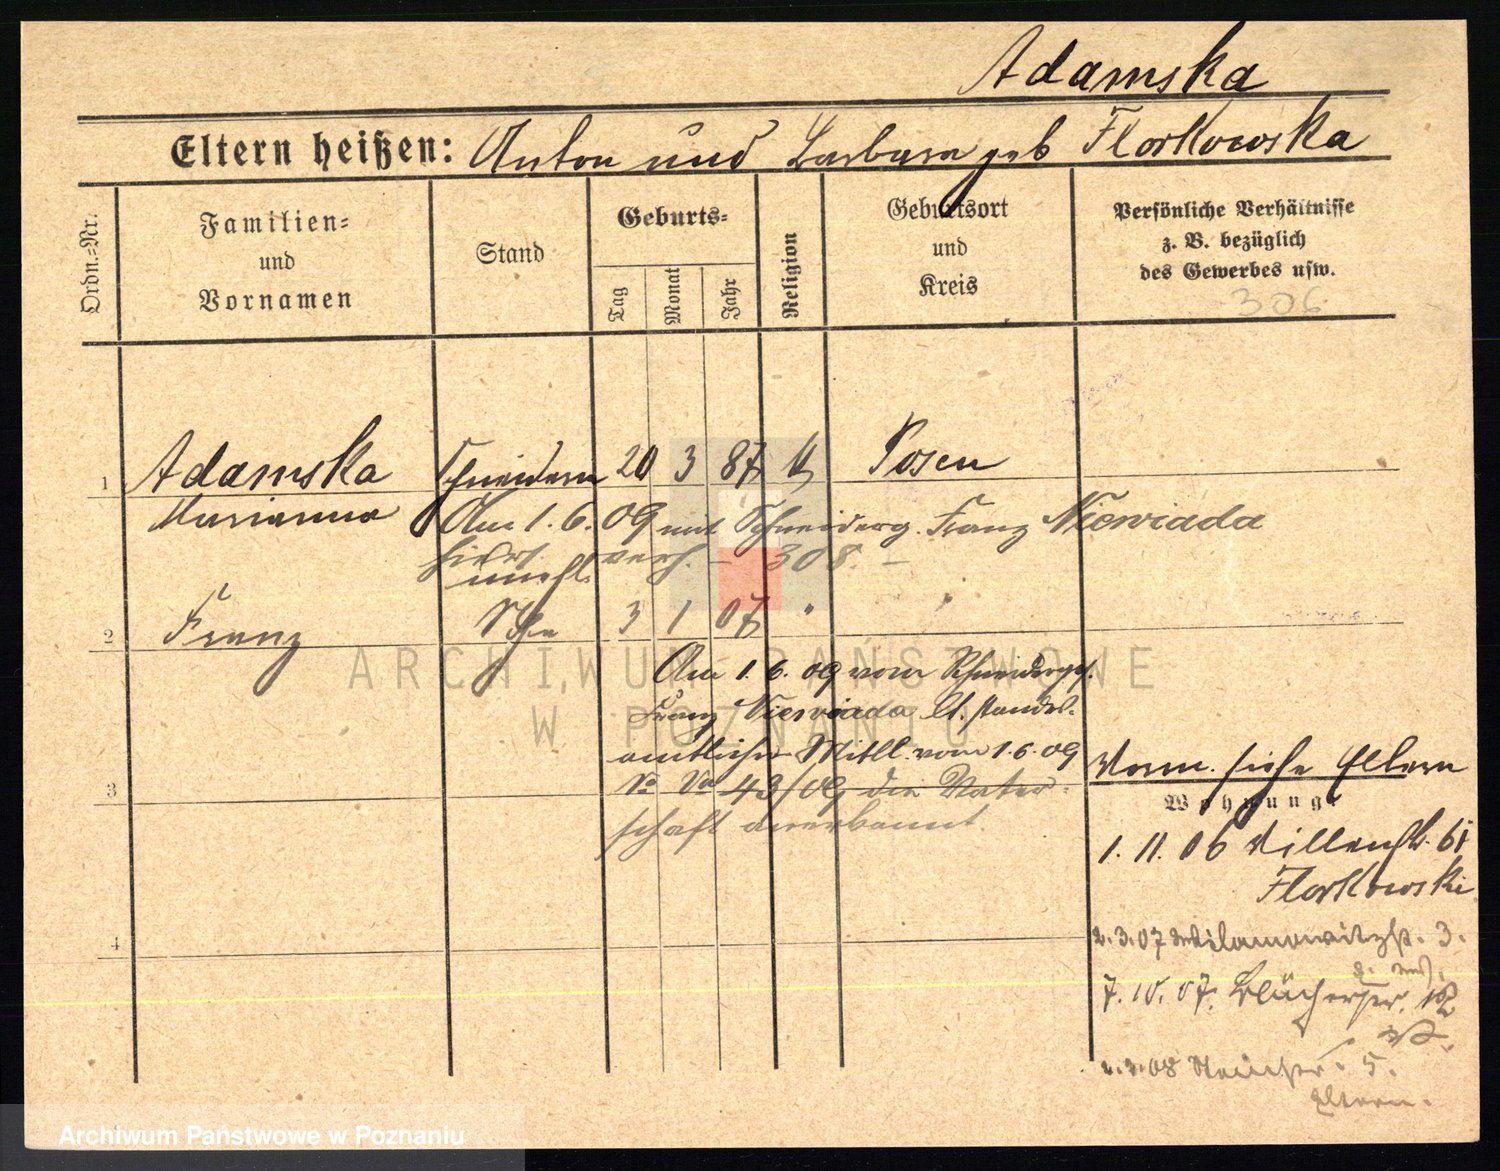 Adamska
Eltern heißen: Anton und Barbara geb Florkowska
Ordn.=Nr.
Familien=
und
Vornamen
Stand
Geburts=
Tag
Monat
Jahr
Religion
Geburtsort
und
Kreis
Persönliche Verhältnisse
z. B. bezüglich
des Gewerbes usw.
306
1 Adamska Schneiderin 20 3 87 k Posen
Marianna Am 1.6.09 mit Schneiderg. Franz Niewiada
hier verh. – 308. –
unehl.
2 Franz Sohn 3 1 07 "
Am 1.6.09 vom Schneiderges.
Franz Niewiada lt. standes-
amtlicher Mittl. vom 1.6.09
43/09 die Vater-
schaft anerkannt.
3
Vorm. siehe Eltern
Wohnung:
1.11.06 61
Florkowski
2.3.07 Wilamowitzstr. 3.
7.10.07. Blücherstr.
4
2.3.08 5.
Eltern.
ARCHIWUM PAŃSTWOWE
W POZNANIU
Archiwum Państwowe w Poznaniu